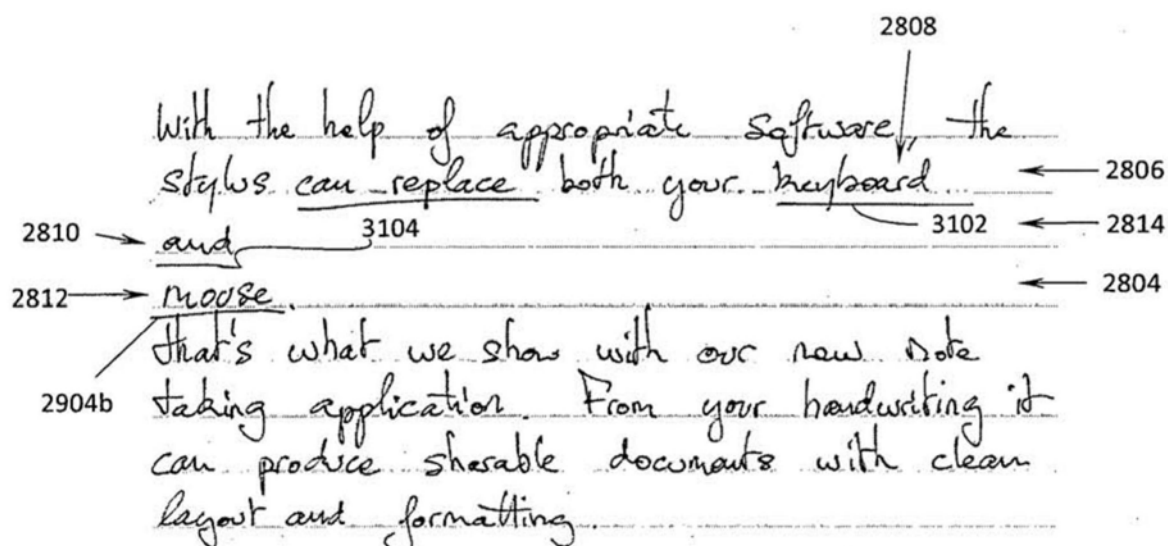 2808
With the help of appropriate software, the
stylus can replace both your keyboard
2806
3102
2814
2810
and
3104
2812
mouse.
2804
that's what we show with our new note
2904b
taking application. From your handwriting it
can produce sharable documents with clean
layout and formatting.